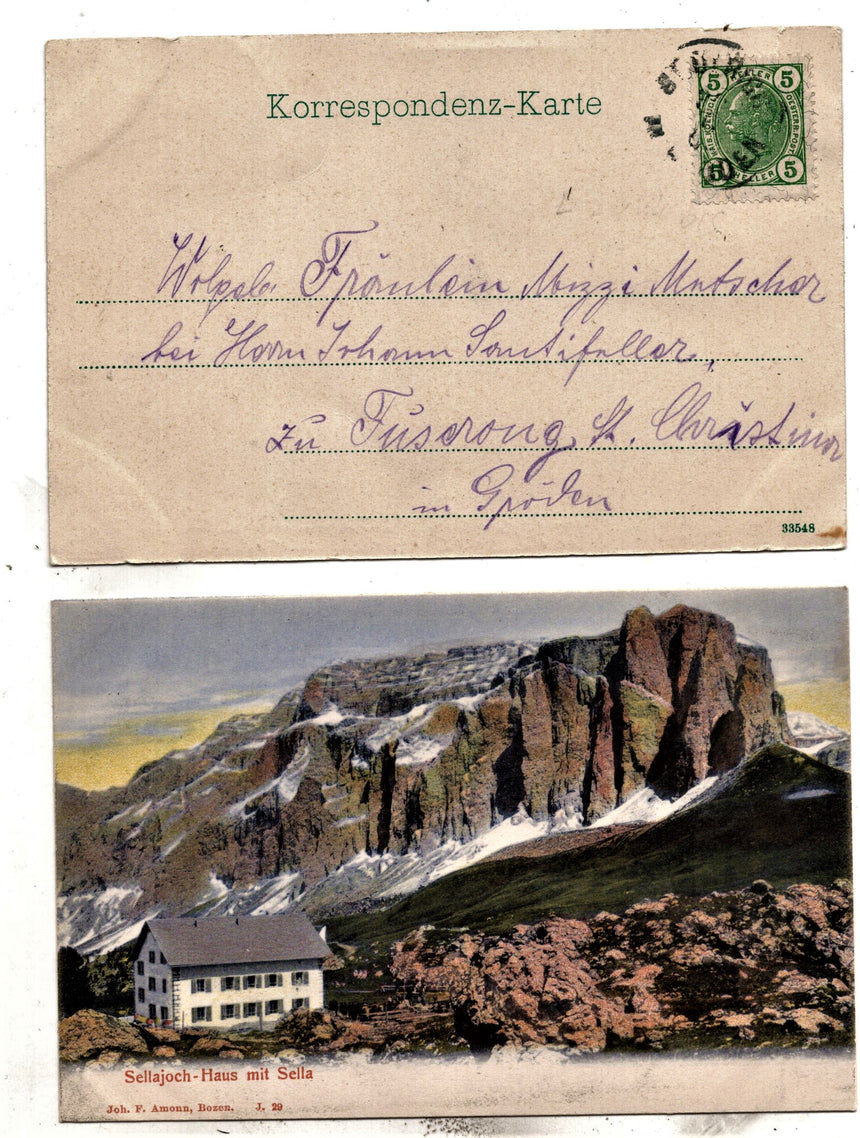 Korrespondenz-Karte
5 HELLER 5
5 HELLER 5
Wolgeb. Fräulein Mizzi Matscher
bei Herrn Johann Santifaller,
zu Fuscrong, St. Christina
in Gröden
33548
Sellajoch-Haus mit Sella
Joh. F. Amonn, Bozen. J. 29